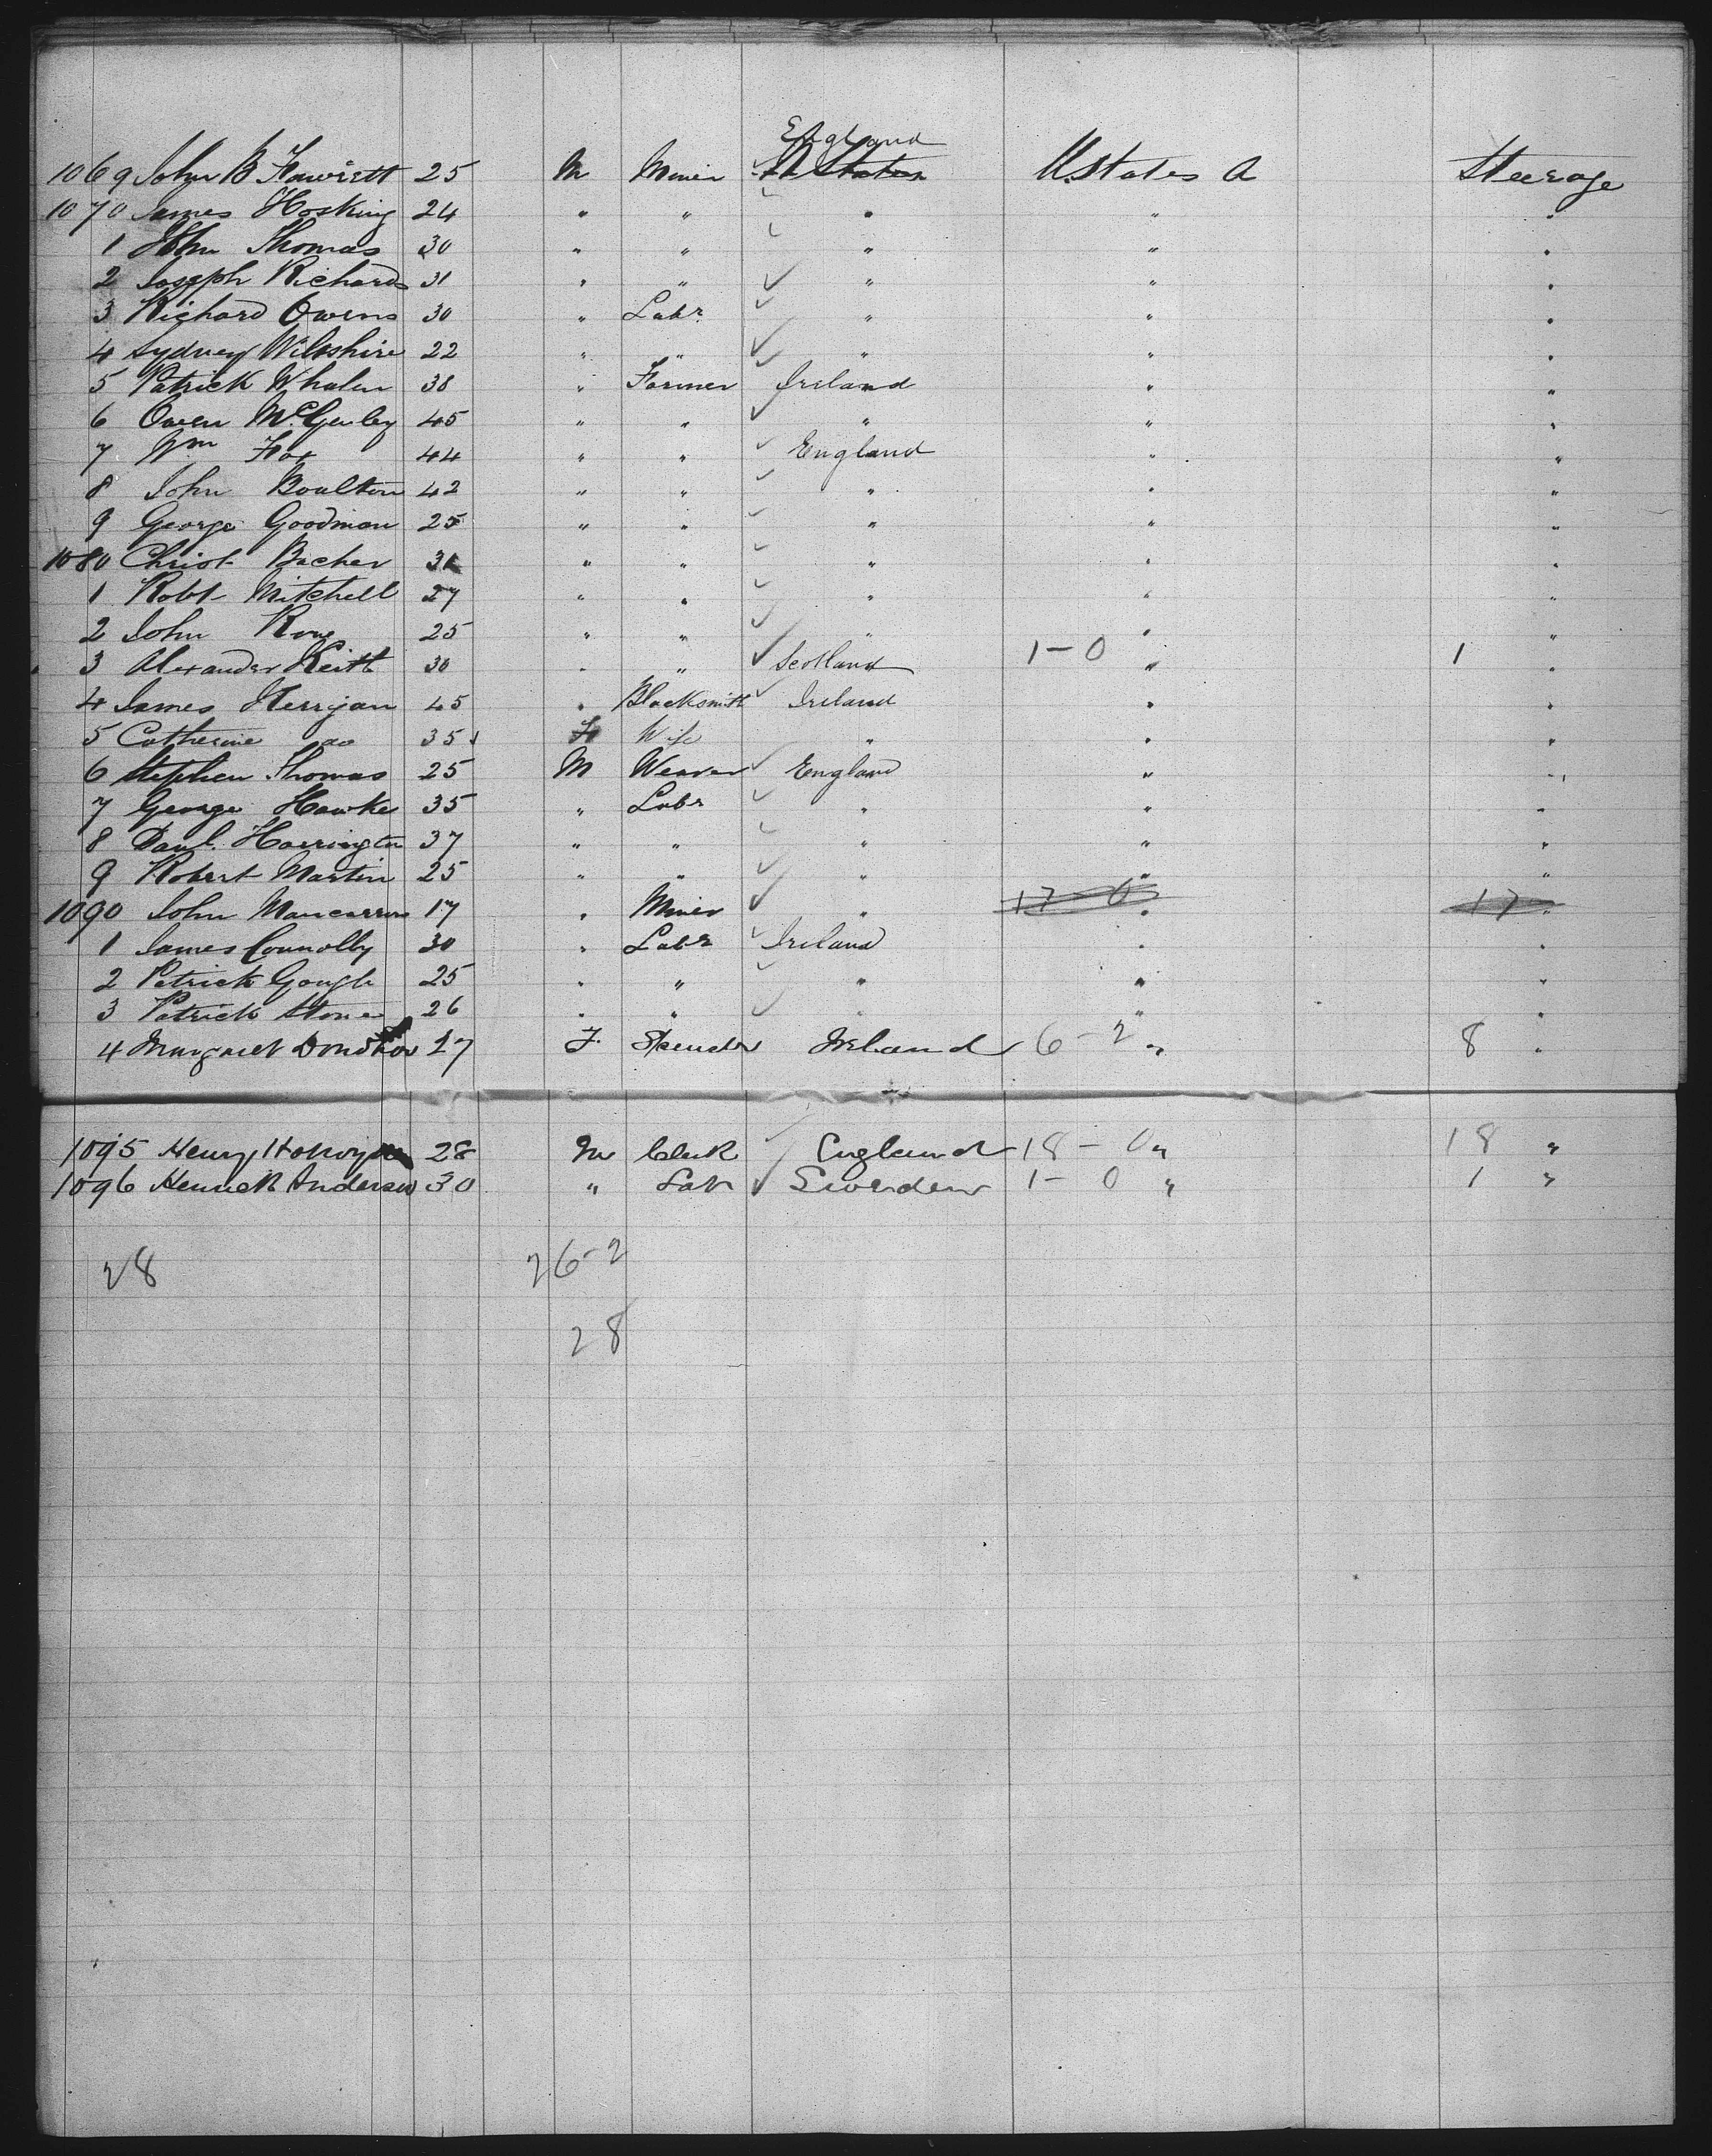 England
1069 John B Fawcett 25 M Miner U States U.States A Steerage
1070 James Hosking 24 " " " " "
1 John Thomas 30 " " " " "
2 Joseph Richards 31 " " " " "
3 Richard Owens 30 " Labr " " "
4 Sydney Wilkshire 22 " " " " "
5 Patrick Whalen 38 " Farmer Ireland " "
6 Owen McGenley 45 " " " " "
7 Wm Fox 44 " " England " "
8 John Boulton 42 " " " " "
9 George Goodman 25 " " " " "
1080 Christ Bacher " " " " "
1 Robt Mitchell 27 " " " " "
2 John Rowe 25 " " " " "
3 Alexander Keith 30 " " Scotland 1-0 " 1 "
4 James Kerrigan 45 " Blacksmith Ireland " "
5 Catherine do 35 F Wife " " "
6 Stephen Thomas 25 M Weaver England " "
7 George Hawke 35 " Labr " " "
8 Danl. Harrington 37 " " " " "
9 Robert Martin 25 " " " " "
1090 John 17 " Miner " 17-0 " 17 "
1 James Connolly 30 " Labr Ireland " "
2 Patrick Gough 25 " " " " "
3 Patrick Stone 26 " " " " "
4 Margaret 27 F. Ireland 6-2 " 8 "
1095 Henry 28 M Clerk England 18-0 " 18 "
1096 Henrick Anderson 30 " Labr Sweden 1-0 " 1 "
28 26-2
28